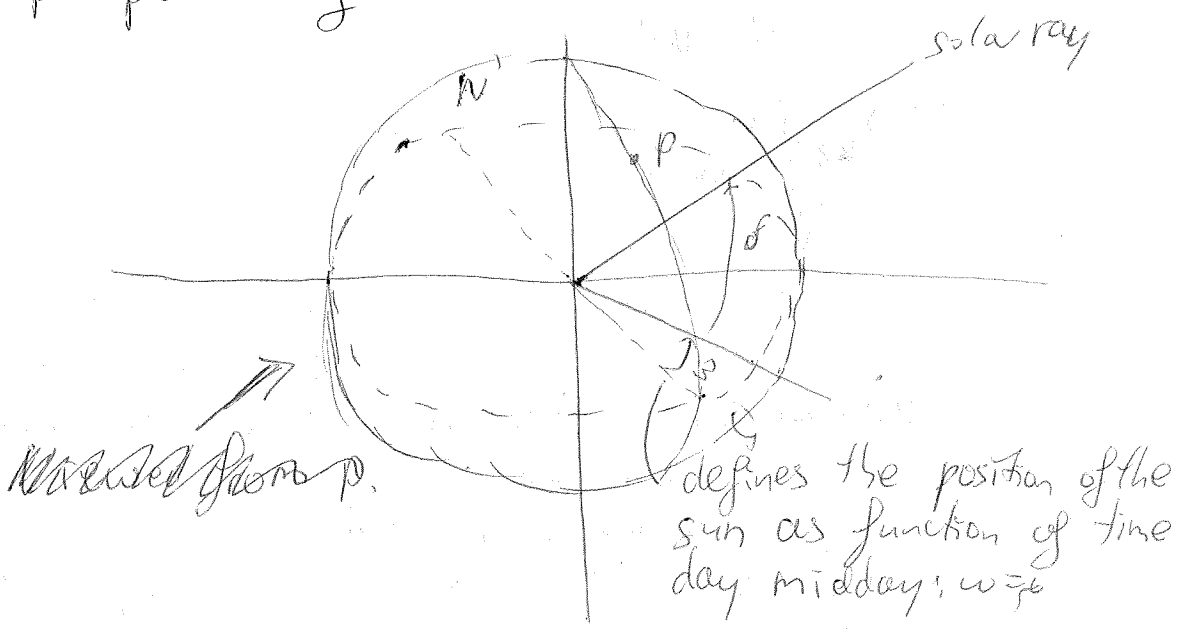 solar ray
N
P
δ
ω
X
from p.
defines the position of the
sun as function of time
day midday: ω =